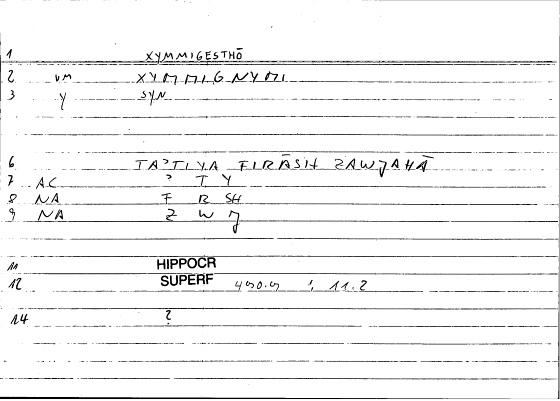 1 XYMMIGESTHŌ
2 VM XYMMIGNYMI
3 Y SYN
6 TA'TIYA FIRĀSH ZAWJAHĀ
7 AC ' T Y
8 NA F R SH
9 NA Z W J
11 HIPPOCR
12 SUPERF : 11.2
14 ?